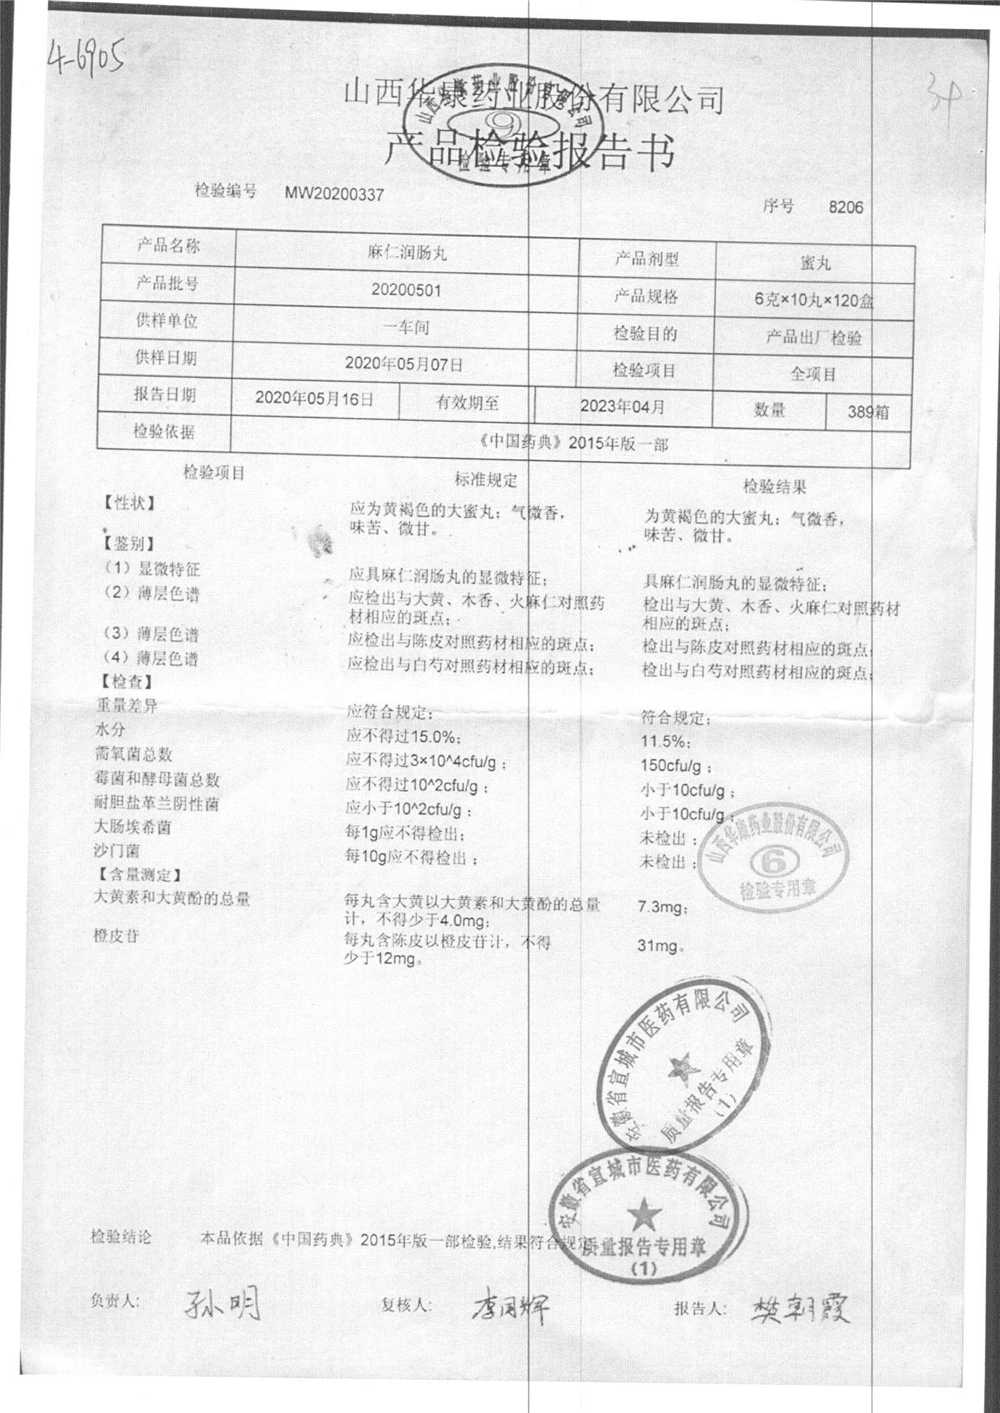 4-6905
山西华康药业股份有限公司
产品检验报告书
检验编号 MW20200337
序号 8206
产品名称 麻仁润肠丸 产品剂型 蜜丸
产品批号 20200501 产品规格 6克×10丸×120盒
供样单位 一车间 检验目的 产品出厂检验
供样日期 2020年05月07日 检验项目 全项目
报告日期 2020年05月16日 有效期至 2023年04月 数量 389箱
检验依据 《中国药典》2015年版一部
检验项目 标准规定 检验结果
【性状】 应为黄褐色的大蜜丸；气微香， 为黄褐色的大蜜丸；气微香，
味苦、微甘。 味苦、微甘。
【鉴别】
（1）显微特征 应具麻仁润肠丸的显微特征； 具麻仁润肠丸的显微特征；
（2）薄层色谱 应检出与大黄、木香、火麻仁对照药 检出与大黄、木香、火麻仁对照药材
材相应的斑点； 相应的斑点；
（3）薄层色谱 应检出与陈皮对照药材相应的斑点； 检出与陈皮对照药材相应的斑点；
（4）薄层色谱 应检出与白芍对照药材相应的斑点； 检出与白芍对照药材相应的斑点；
【检查】
重量差异 应符合规定； 符合规定；
水分 应不得过15.0%； 11.5%；
需氧菌总数 应不得过3×10^4cfu/g； 150cfu/g；
霉菌和酵母菌总数 应不得过10^2cfu/g； 小于10cfu/g；
耐胆盐革兰阴性菌 应小于10^2cfu/g； 小于10cfu/g；
大肠埃希菌 每1g应不得检出； 未检出；
沙门菌 每10g应不得检出； 未检出；
【含量测定】
大黄素和大黄酚的总量 每丸含大黄以大黄素和大黄酚的总量 7.3mg；
计，不得少于4.0mg；
橙皮苷 每丸含陈皮以橙皮苷计，不得 31mg。
少于12mg。
山西华康药业股份有限公司
6
检验专用章
安徽省宣城市医药有限公司
质量报告专用章
(1)
安徽省宣城市医药有限公司
质量报告专用章
(1)
检验结论 本品依据《中国药典》2015年版一部检验,结果符合规定
负责人: 孙明 复核人: 李国辉 报告人: 樊朝霞
山西华康药业股份有限公司
9
检验专用章